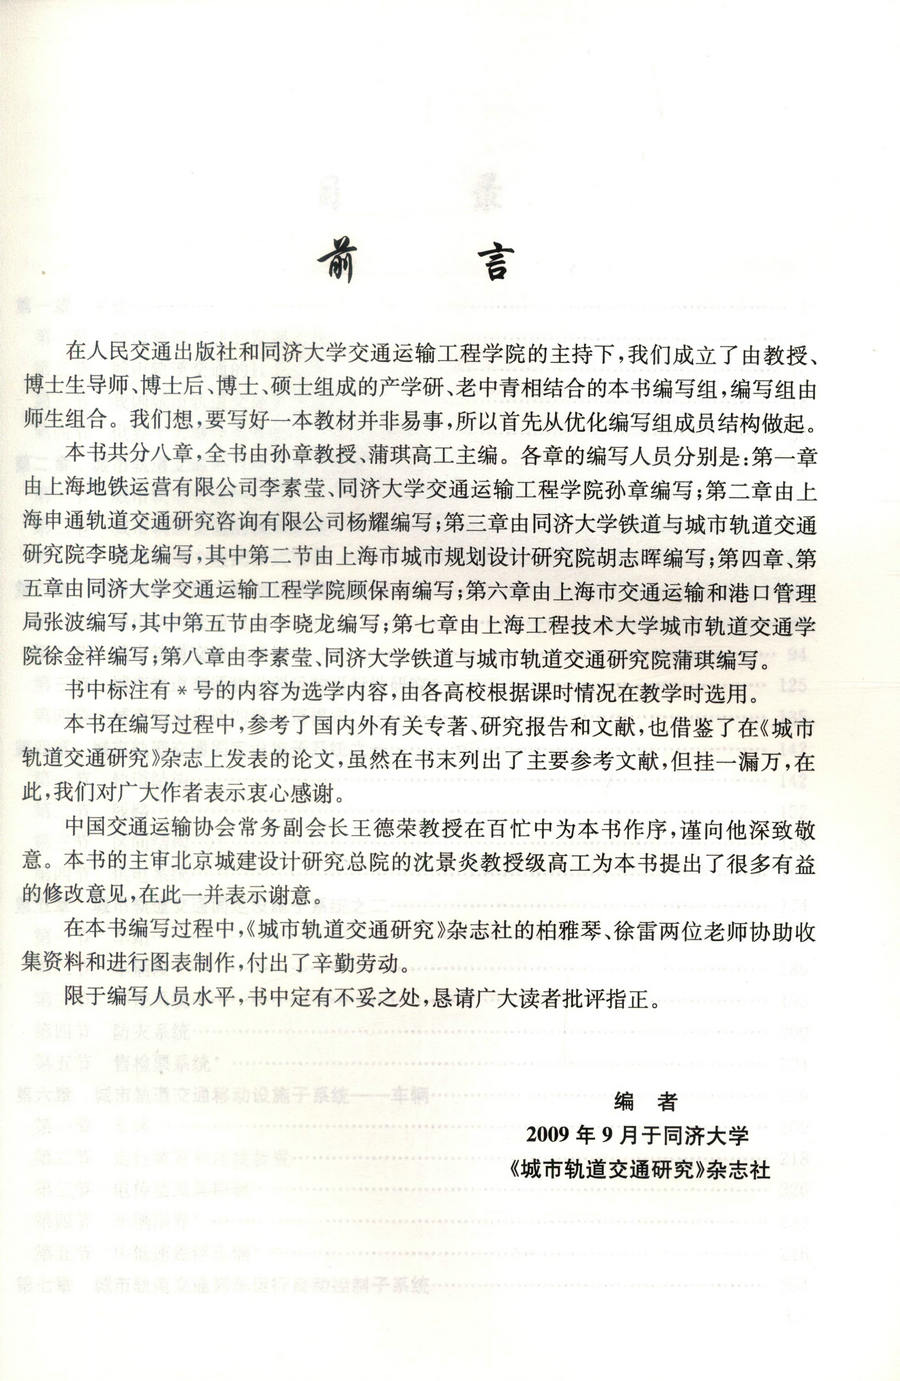 前 言
在人民交通出版社和同济大学交通运输工程学院的主持下,我们成立了由教授、
博士生导师、博士后、博士、硕士组成的产学研、老中青相结合的本书编写组,编写组由
师生组合。我们想,要写好一本教材并非易事,所以首先从优化编写组成员结构做起。
本书共分八章,全书由孙章教授、蒲琪高工主编。各章的编写人员分别是:第一章
由上海地铁运营有限公司李素莹、同济大学交通运输工程学院孙章编写;第二章由上
海申通轨道交通研究咨询有限公司杨耀编写;第三章由同济大学铁道与城市轨道交通
研究院李晓龙编写,其中第二节由上海市城市规划设计研究院胡志晖编写;第四章、第
五章由同济大学交通运输工程学院顾保南编写;第六章由上海市交通运输和港口管理
局张波编写,其中第五节由李晓龙编写;第七章由上海工程技术大学城市轨道交通学
院徐金祥编写;第八章由李素莹、同济大学铁道与城市轨道交通研究院蒲琪编写。
书中标注有*号的内容为选学内容,由各高校根据课时情况在教学时选用。
本书在编写过程中,参考了国内外有关专著、研究报告和文献,也借鉴了在《城市
轨道交通研究》杂志上发表的论文,虽然在书末列出了主要参考文献,但挂一漏万,在
此,我们对广大作者表示衷心感谢。
中国交通运输协会常务副会长王德荣教授在百忙中为本书作序,谨向他深致敬
意。本书的主审北京城建设计研究总院的沈景炎教授级高工为本书提出了很多有益
的修改意见,在此一并表示谢意。
在本书编写过程中,《城市轨道交通研究》杂志社的柏雅琴、徐雷两位老师协助收
集资料和进行图表制作,付出了辛勤劳动。
限于编写人员水平,书中定有不妥之处,恳请广大读者批评指正。
编 者
2009 年 9 月于同济大学
《城市轨道交通研究》杂志社